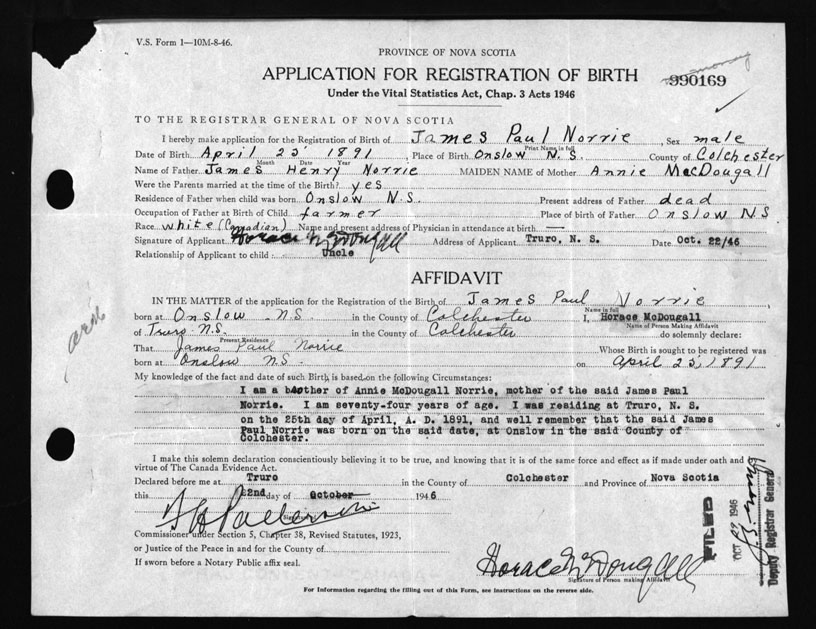 V.S. Form 1—10M-8-46.
PROVINCE OF NOVA SCOTIA
APPLICATION FOR REGISTRATION OF BIRTH
990169
Under the Vital Statistics Act, Chap. 3 Acts 1946
TO THE REGISTRAR GENERAL OF NOVA SCOTIA
I hereby make application for the Registration of Birth of James Paul Norrie, Sex male
Print Name in full
Date of Birth April 23 1891, Place of Birth Onslow N.S. County of Colchester
Month Date Year
Name of Father James Henry Norrie MAIDEN NAME of Mother Annie MacDougall
Were the Parents married at the time of the Birth? yes
Residence of Father when child was born Onslow N.S. Present address of Father dead
Occupation of Father at Birth of Child farmer Place of birth of Father Onslow N S
Race white (Canadian) Name and present address of Physician in attendance at birth —
Signature of Applicant Horace McDougall Address of Applicant Truro, N. S. Date Oct. 22/46
Relationship of Applicant to child: Uncle
AFFIDAVIT
IN THE MATTER of the application for the Registration of the Birth of James Paul Norrie
born at Onslow N.S. in the County of Colchester I, Horace McDougall
Name in full
Name of Person Making Affidavit
of Truro N.S. in the County of Colchester do solemnly declare:
Present Residence
That James Paul Norrie Whose Birth is sought to be registered was
born at Onslow N.S. on April 23, 1891
My knowledge of the fact and date of such Birth, is based on the following Circumstances:
I am a brother of Annie McDougall Norrie, mother of the said James Paul
Norrie. I am seventy-four years of age. I was residing at Truro, N. S.
on the 25th day of April, A. D. 1891, and well remember that the said James
Paul Norrie was born on the said date, at Onslow in the said County of
Colchester.
I make this solemn declaration conscientiously believing it to be true, and knowing that it is of the same force and effect as if made under oath and
virtue of The Canada Evidence Act.
Declared before me at Truro in the County of Colchester and Province of Nova Scotia
this 22nd day of October 1946
Commissioner under Section 5, Chapter 38, Revised Statutes, 1923,
or Justice of the Peace in and for the County of
If sworn before a Notary Public affix seal.
Horace McDougall
Signature of Person making Affidavit
For Information regarding the filling out of this Form, see instructions on the reverse side.
FILED
OCT 29 1946
Deputy Registrar General